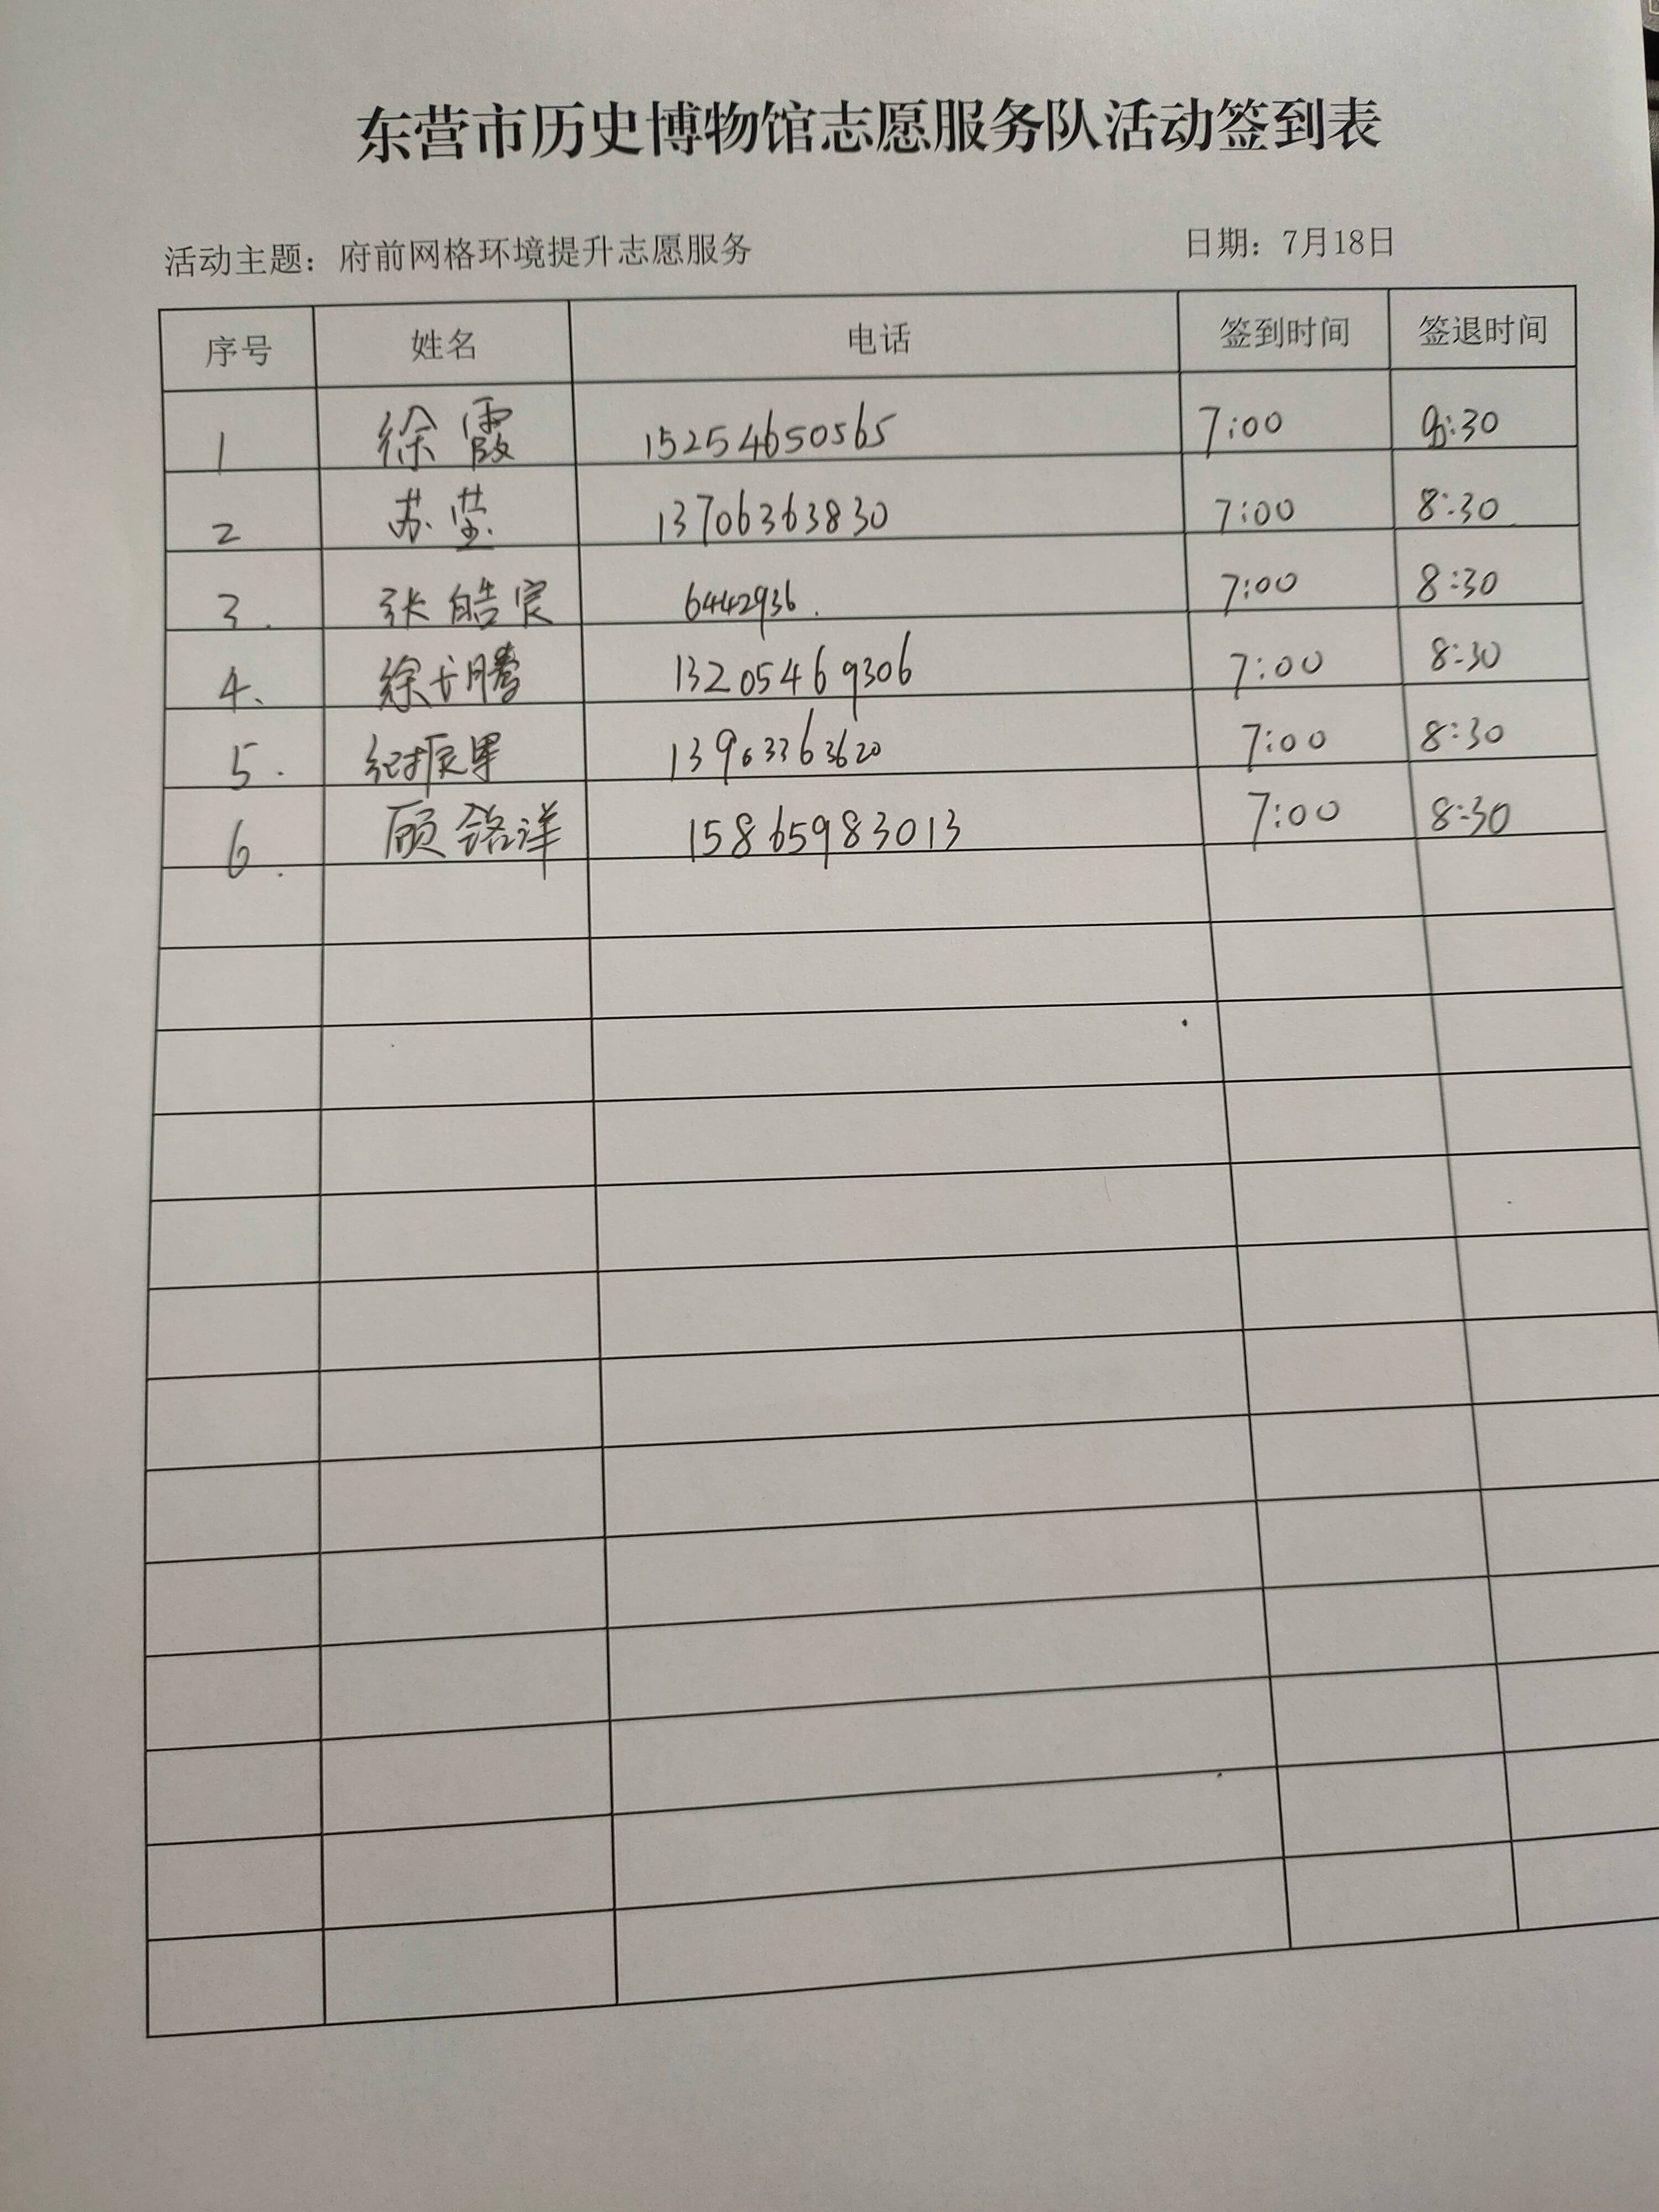 东营市历史博物馆志愿服务队活动签到表
活动主题：府前网格环境提升志愿服务 日期：7月18日
序号 姓名 电话 签到时间 签退时间
1 徐霞 15254650565 7:00 :30
2 苏莹 13706363830 7:00 8:30
3. 张皓宸 6442936. 7:00 8:30
4、 徐长腾 13205469306 7:00 8:30
5. 纪振果 13963363620 7:00 8:30
6. 顾铭洋 15865983013 7:00 8:30